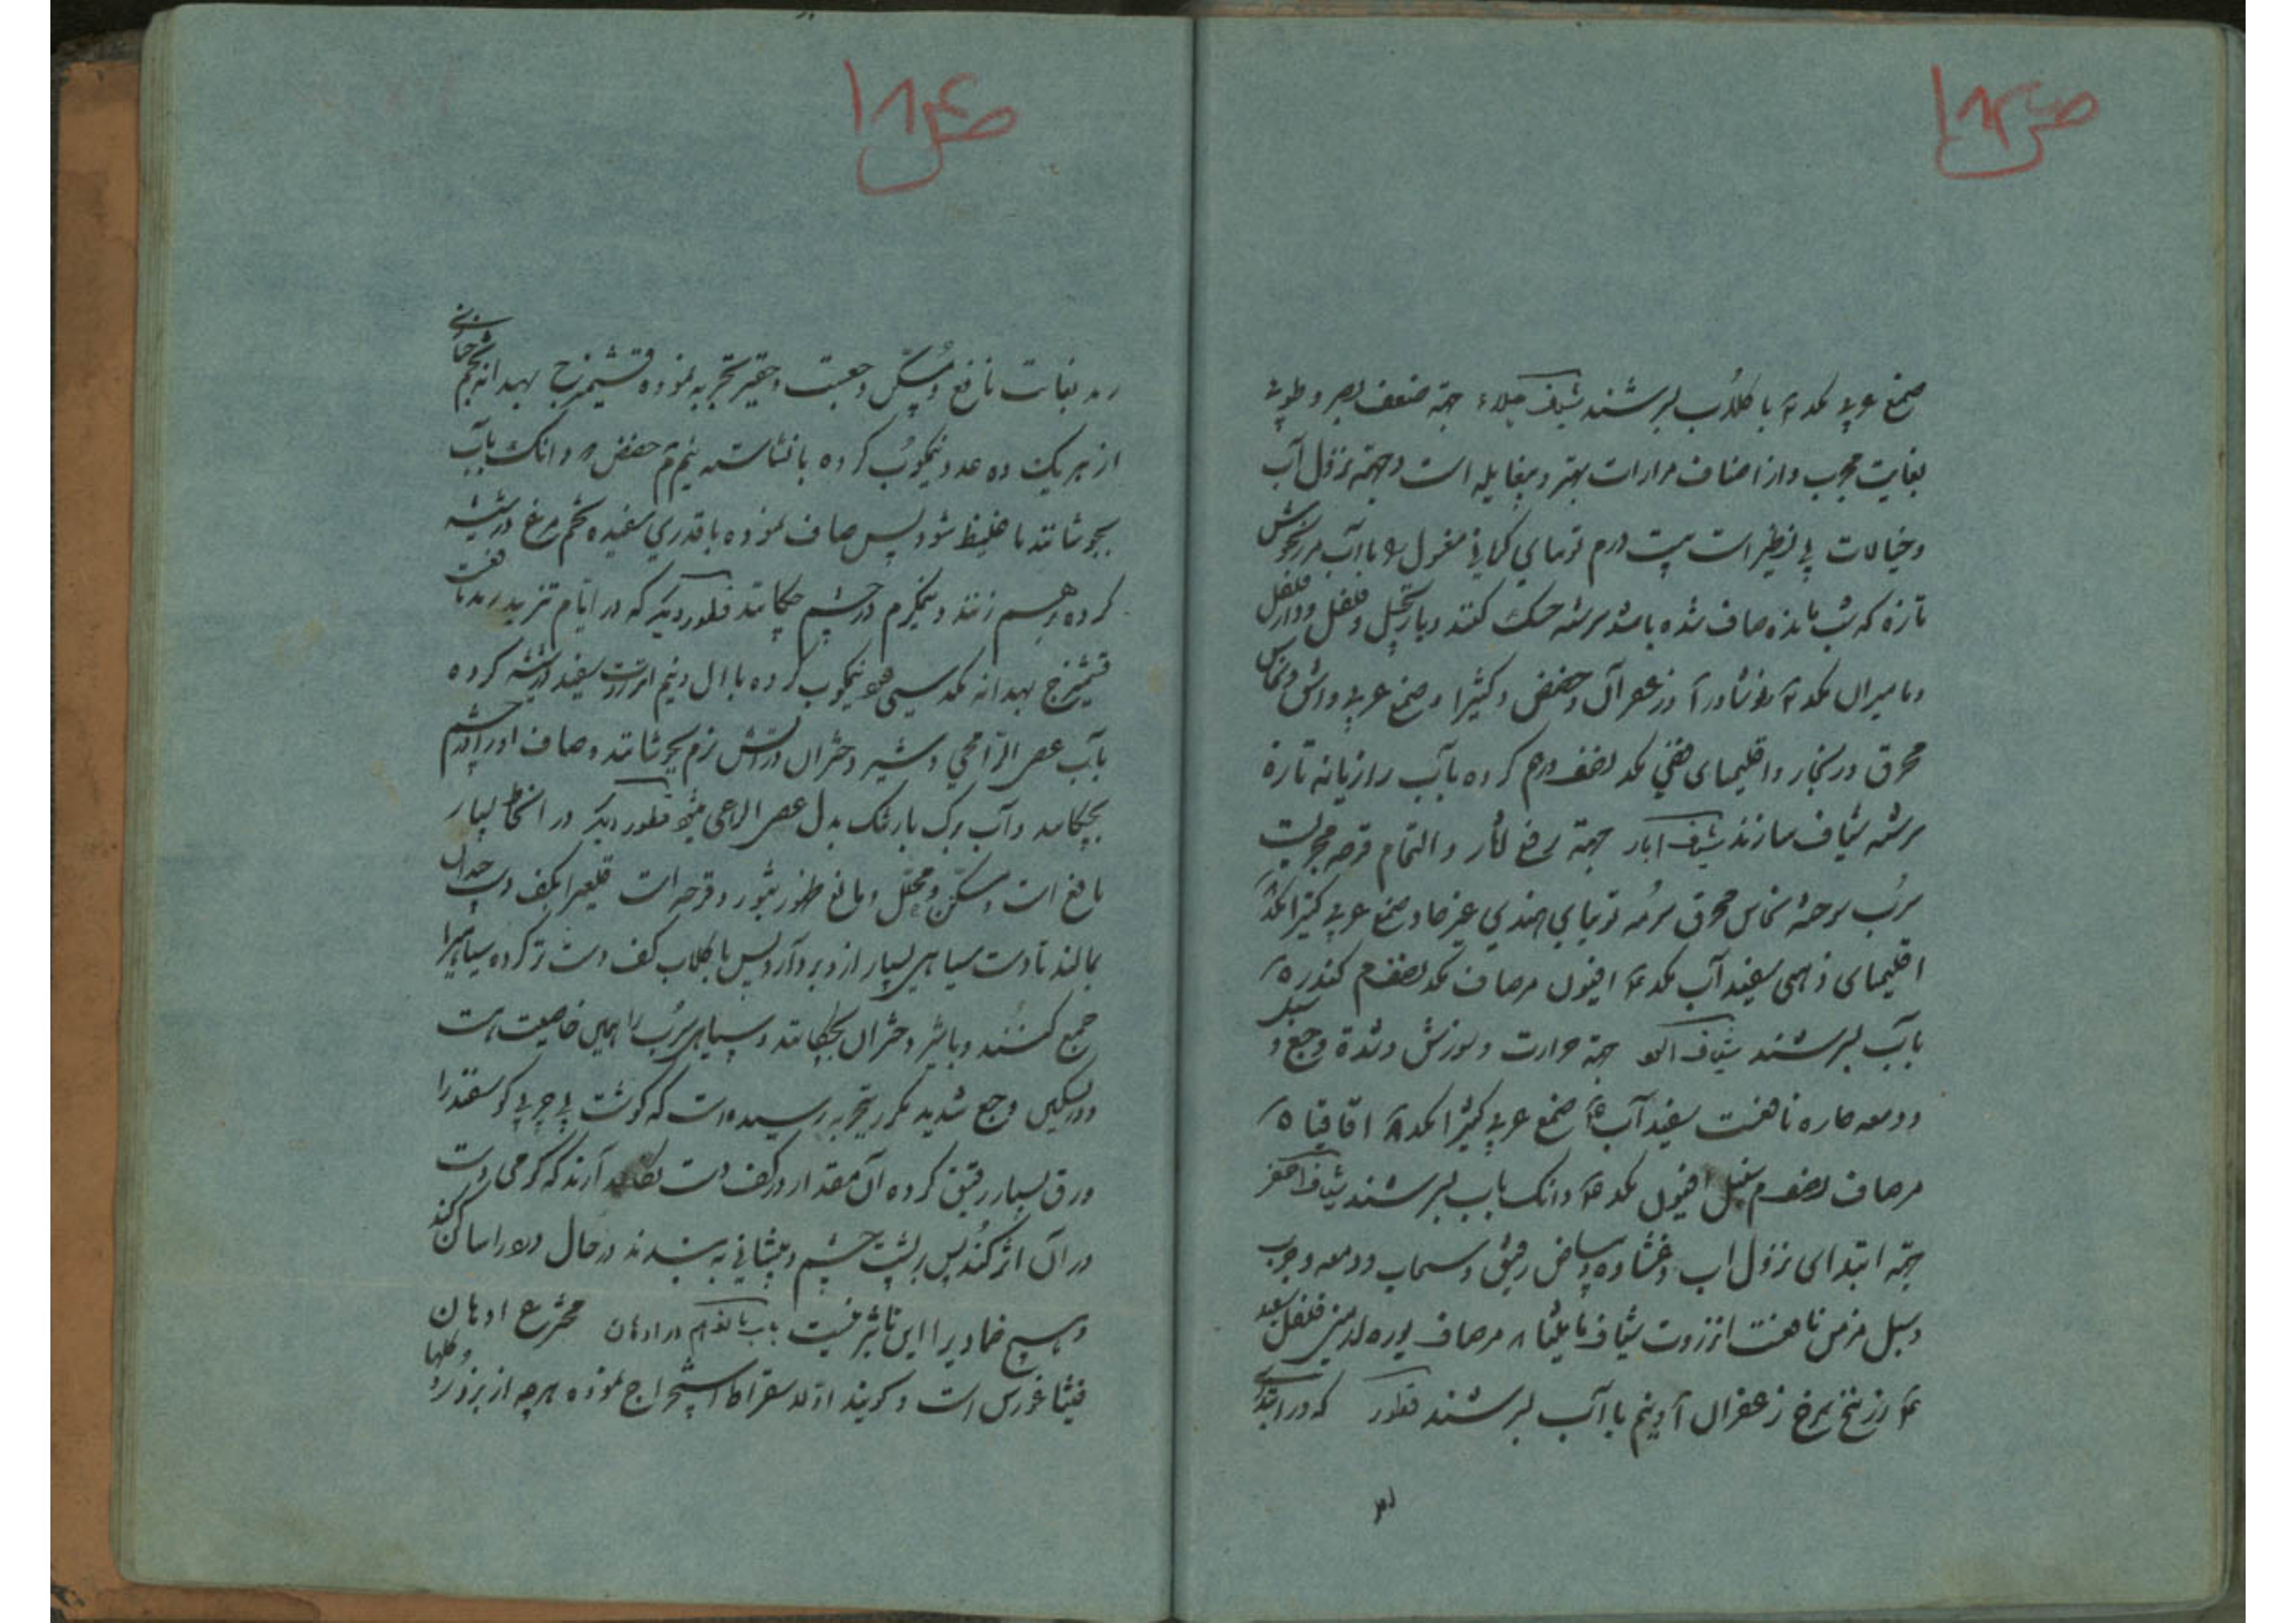 ص ۱۸۳
صمغ عربی با گلاب بسرشند شیاف جلاء جهة ضعف بصر و رطوبة
بغایت مجرب و از اصناف مرارات بهتر و بیغایله است و جهة نزول آب
و خیالات بی نظیر است بیست درم توتیای کرمانی مغسول با آب مرزنجوش
تازه که شب مانده صاف شده باشد سرشته خشک کنند و با زنجبیل و فلفل و دارفلفل
و مامیران نوشادر زعفران و حضض و کثیرا و صمغ عربی و اشق و نحاس
محرق و زنجار و اقلیمای فضی نصف درم کرده بآب رازیانه تازه
سرشته شیاف سازند شیاف ابار جهة رفع آثار و التیام قرحه مجربست
سرب سوخته نحاس محرق سرمه توتیای هندی صمغ عربی کثیرا
اقلیمای ذهبی سفید آب افیون مرصاف نصف م کندر ۵
بآب بسرشند شیاف جهة حرارت و سوزش و شدة وجع و سبل
و دمعه حاره نافعست سفید آب صمغ عربی کثیرا اقاقیا ۵
مرصاف نصف م سنبل افیون دانک بآب بسرشند شیاف اصفر
جهة ابتدای نزول اب و غشاوه و بیاض رقیق و سحاب و دمعه و جرب
و سبل مزمن نافعست انزروت شیاف مامیثا ۸ مرصاف بوره ارمنی فلفل سفید
زرنیخ سرخ زعفران و نیم با آب بسرشند قطور که در ابتدای
ص ۱۸۴
رمد بغایت نافع و مسکن وجعست و حقیر تجربه نموده تشمیزج بهدانه تخم خبازی
از هریک ده عدد نیمکوب کرده با نشاسته نیم م حضض ۲ دانک بآب
بجوشانند تا غلیظ شود پس صاف نموده با قدری سفیده تخم مرغ در شیشه
کرده برهم زنند و نیمگرم در چشم چکانند قطور دیگر که در ایام تزید رمد نافعست
تشمیزج بهدانه نیمکوب کرده با و نیم انزروت سفید در شیشه کرده
بآب عصی الراعی و شیر دختران در آتش نرم بجوشانند و صاف او را در چشم
بچکانند و آب برک بارتنک بدل عصی الراعی قطور دیگر در انحطاط بسیار
نافع است و مسکن و محلل و مانع ظهور بثور و قرحه است قلعی را بکف دست چندان
بمالند تا دست سیاهی بسیار از و بردارد پس با گلاب کف دست تر کرده سیاهی را
جمع کنند و با شیر دختران بچکانند و سیاهی سرب را همین خاصیت است
و در تسکین وجع شدید مکرر بتجربه رسیده است که گوشت بی چربی گوسفند را
ورق بسیار رقیق کرده آن مقدار در کف دست آرند که گرمی دست
در آن اثر کند پس بر پشت چشم و پیشانی به بندند در حال درد را ساکن کند
و هیچ ضمادی را این تاثیر نیست باب در ادهان مخترع ادهان
فیثاغورس است و گویند اول سقراط استخراج نموده هر چه از بزور و گلها